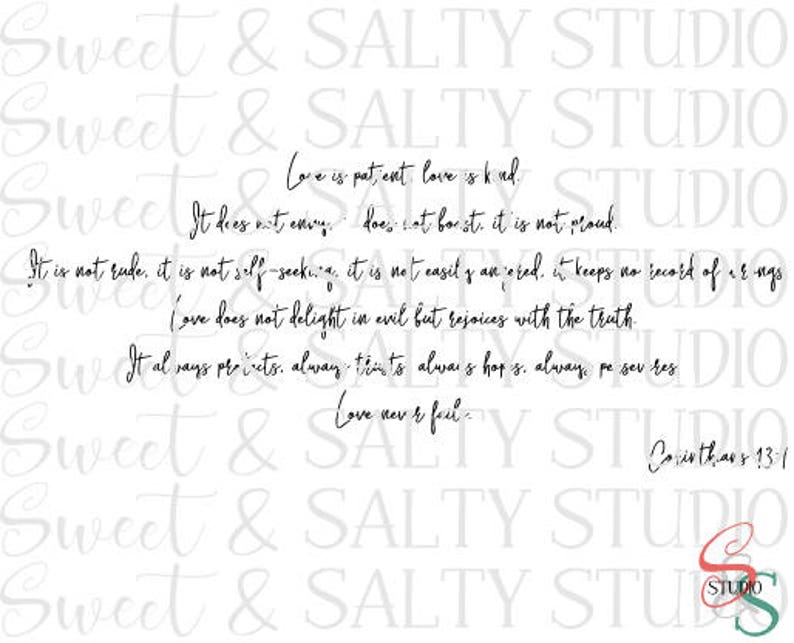 Sweet & SALTY STUDIO
Sweet & SALTY STUDIO
Love is patient, love is kind.
Sweet & SALTY STUDIO
It does not envy, does not boast, it is not proud.
Sweet & SALTY STUDIO
It is not rude, it is not self-seeking, it is not easily angered, it keeps no record of wrongs
Love does not delight in evil but rejoices with the truth.
Sweet & SALTY STUDIO
It always protects, always trusts, always hopes, always perseveres
Love never fails
Sweet & SALTY STUDIO
Corinthians 13:
Sweet & SALTY STUDIO
SS STUDIO
Sweet & SALTY STUDIO